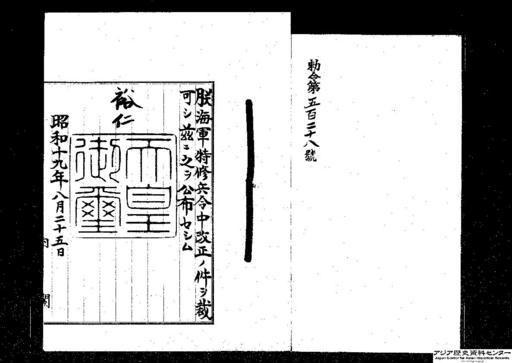 勅令第五百二十八號
朕海軍特修兵令中改正ノ件ヲ裁
可シ茲ニ之ヲ公布セシム
裕仁
天皇
御璽
昭和十九年八月二十五日
内
閣
アジア歴史資料センター
Japan Center for Asian Historical Records